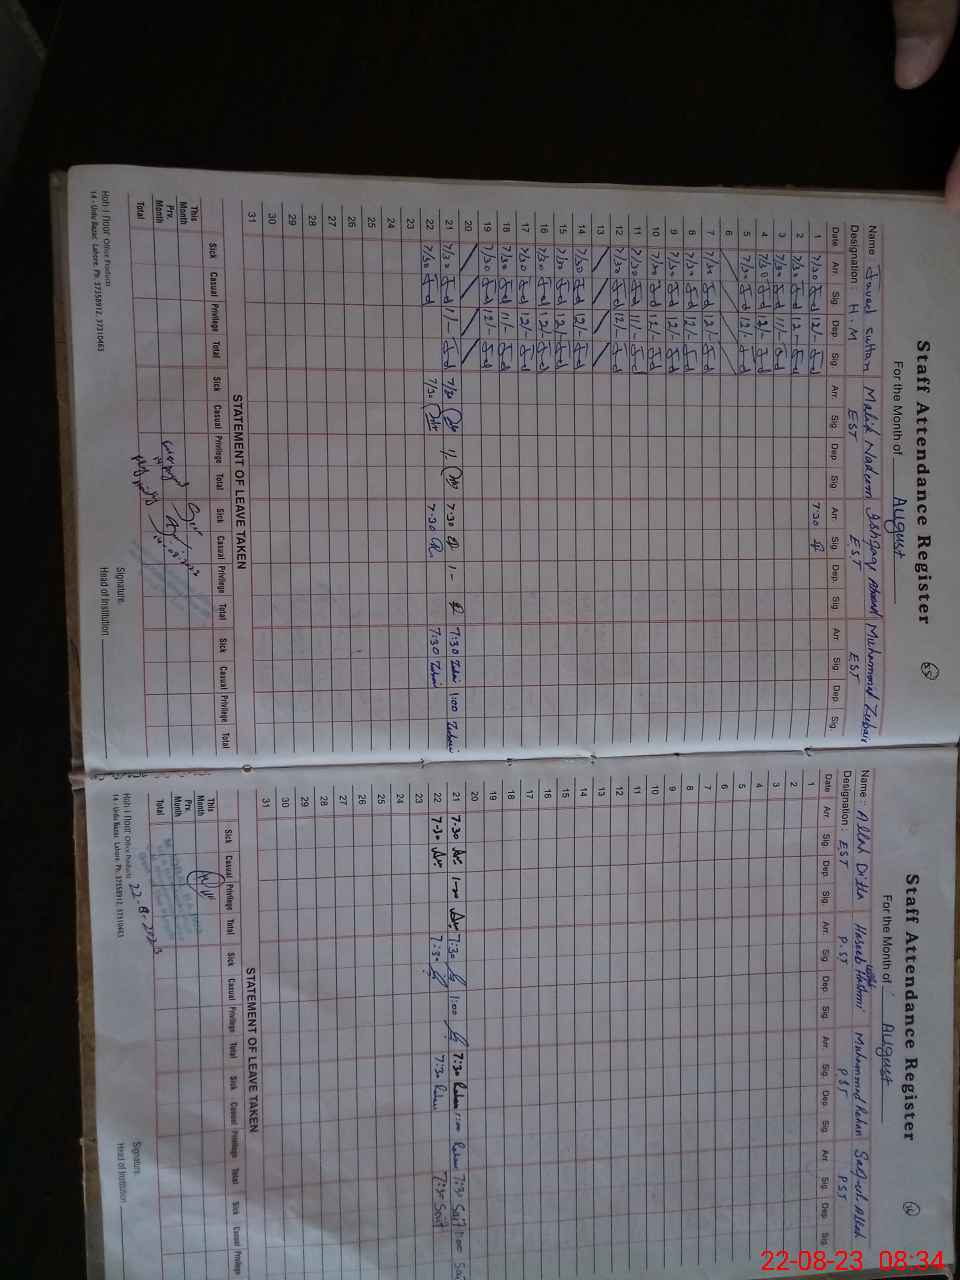 Staff Attendance Register
For the Month of August
Name : Javed Sultan Malik Nadeem Ishfaq Ahmad Muhammad Zubair
Designation : H.M EST EST EST
Date Arr. Sig. Dep. Sig. Arr. Sig. Dep. Sig. Arr. Sig. Dep. Sig. Arr. Sig. Dep. Sig.
1 7/30 Jd 12/- Jd 7:30
2 7/30 Jd 12- Jd
3 7/30 Jd 11/- Jd
4 7/30 Jd 12/- Jd
5 7/30 Jd 12/- Jd
6
7 7/30 Jd 12/- Jd
8 7/30 Jd 12/- Jd
9 7/30 Jd 12/- Jd
10 7/30 Jd 12/- Jd
11 7/30 Jd 11/- Jd
12 7/30 Jd 12/- Jd
13
14 7/30 Jd 12/- Jd
15 7/30 Jd 12/- Jd
16 7/30 Jd 12/- Jd
17 7/30 Jd 12/- Jd
18 7/30 Jd 11/- Jd
19 7/30 Jd 12/- Jd
20
21 7/30 Jd 1/- Jd 7/30 1/- 7:30 1- 7:30 Zubair 1:00 Zubair
22 7/30 Jd 7/30 7:30 7:30 Zubair
23
24
25
26
27
28
29
30
31
STATEMENT OF LEAVE TAKEN
Sick Casual Privilege Total Sick Casual Privilege Total Sick Casual Privilege Total Sick Casual Privilege Total
This Month
Prv. Month
Total
Signature.
Head of Institution
Hoh I Noor Office Products
14 - Urdu Bazar, Lahore. Ph: 37358912, 37310463
Staff Attendance Register
For the Month of August
Name : Allah Ditta Haseeb Hashmi Muhammad Rehan Saif-ul-Allah
Designation : EST P.ST PST PST
Date Arr. Sig. Dep. Sig. Arr. Sig. Dep. Sig. Arr. Sig. Dep. Sig. Arr. Sig. Dep. Sig.
1
2
3
4
5
6
7
8
9
10
11
12
13
14
15
16
17
18
19
20
21 7.30 1-00 7:30 1:00 7:30 Rehan 1:00 Rehan 7:30 Saif 1:00 Saif
22 7-30 7:30 7:30 Rehan 7:30 Saif
23
24
25
26
27
28
29
30
31
STATEMENT OF LEAVE TAKEN
Sick Casual Privilege Total Sick Casual Privilege Total Sick Casual Privilege Total Sick Casual Privilege
This Month
Prv. Month
Total
22-8-2023
Signature.
Head of Institution
Hoh I Noor Office Products
14 - Urdu Bazar, Lahore. Ph: 37358912, 37310463
22-08-23 08:34